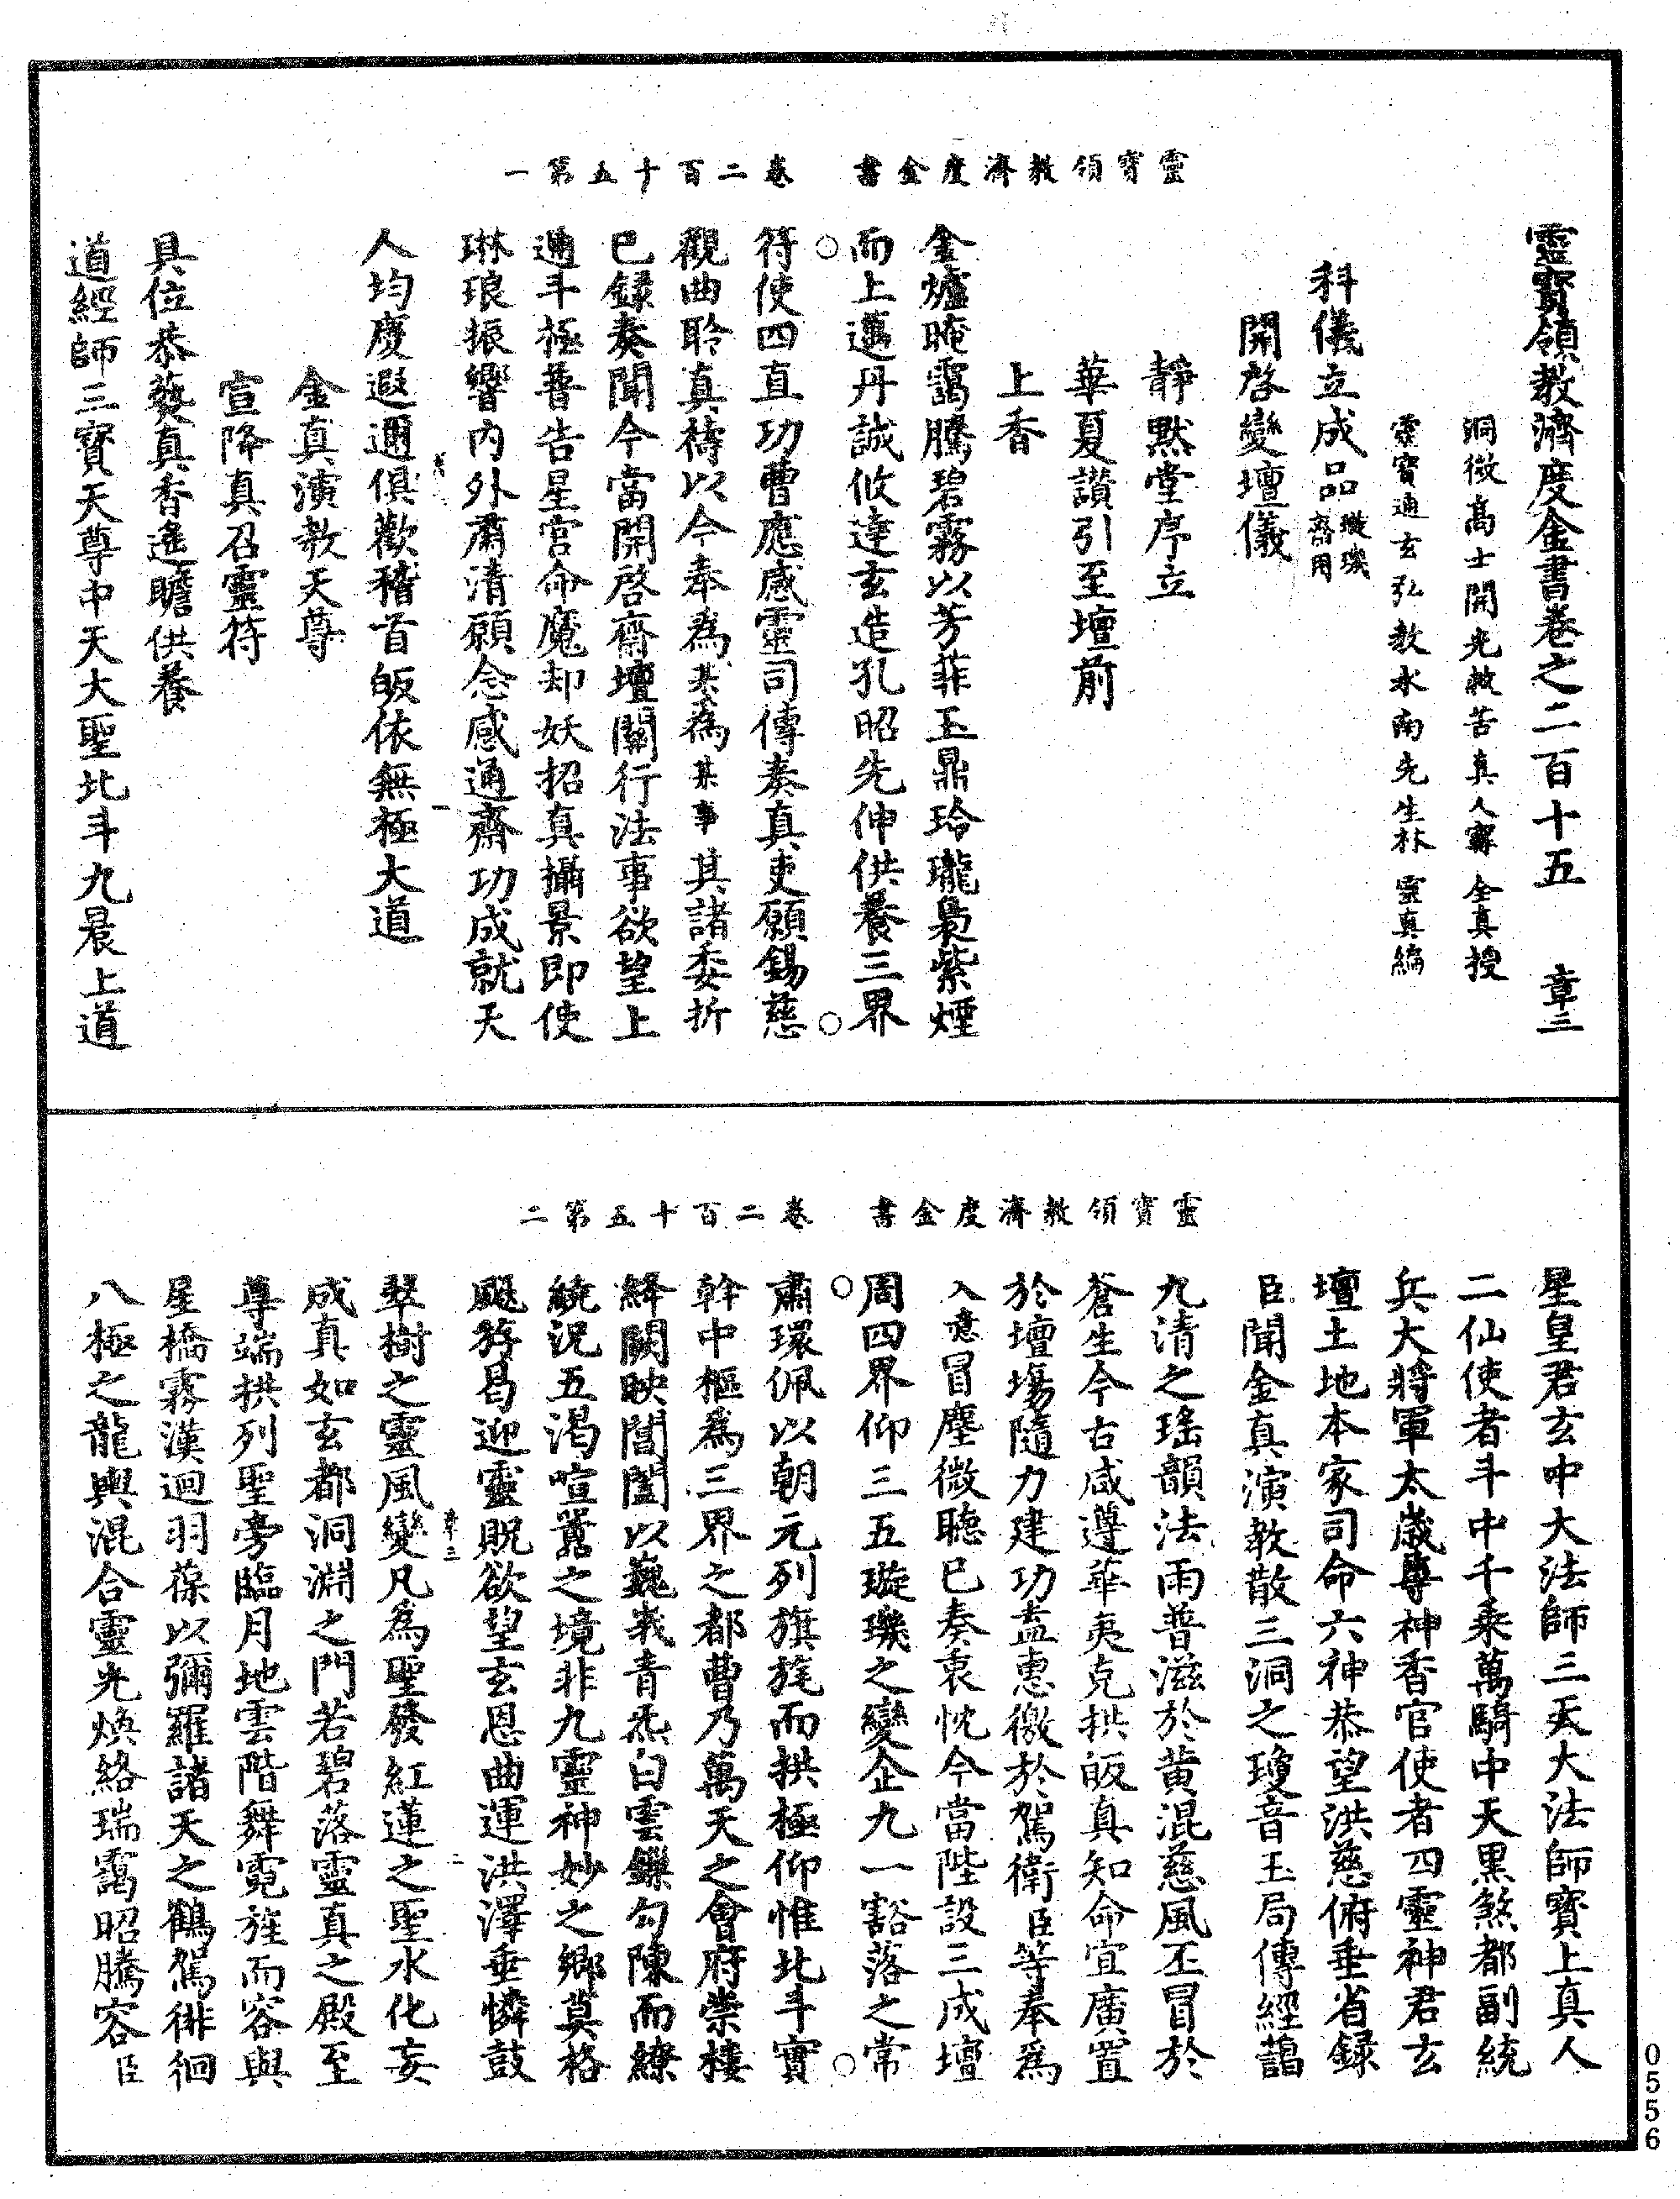 靈寶領教濟度金書　卷二百十五第一
靈寶領教濟度金書卷之二百十五　章三
洞微高士開光救苦真人甯　全真授
靈寶通玄弘教水南先生林　靈真編
科儀立成品璇璣齋用
開啓變壇儀
靜默堂序立
華夏讚引至壇前
上香
金爐晻靄騰碧霧以芳菲玉鼎玲瓏裊紫煙
而上邁丹誠攸達玄造孔昭先伸供養三界
符使四直功曹應感靈司傳奏真吏願錫慈
觀曲聆真禱以今奉為某為某事其諸委折
已錄奏聞今當開啓齋壇關行法事欲望上
通斗極普告星宮命魔却妖招真攝景即使
琳琅振響內外肅清願念感通齋功成就天
人均慶遐邇俱歡稽首皈依無極大道
金真演教天尊
宣降真召靈符
具位恭爇真香遙瞻供養
道經師三寶天尊中天大聖北斗九晨上道
靈寶領教濟度金書　卷二百十五第二
星皇君玄中大法師三天大法師寶上真人
二仙使者斗中千乘萬騎中天黑煞都副統
兵大將軍太歲尊神香官使者四靈神君玄
壇土地本家司命六神恭望洪慈俯垂省錄
臣聞金真演教散三洞之瓊音玉局傳經藹
九清之瑤韻法雨普滋於黃混慈風丕冒於
蒼生今古咸遵華夷克拱皈真知命宜廣置
於壇塲隨力建功盍惠徼於駕衛臣等奉為
入意冒塵微聽已奏衷忱今當陛設三成壇
周四界仰三五璇璣之變企九一豁落之常
肅環佩以朝元列旗旄而拱極仰惟北斗實
幹中樞為三界之都曹乃萬天之會府崇樓
絳闕映閶闔以巍峩青炁白雲鑠勾陳而繚
繞況五濁喧囂之境非九靈神妙之鄉莫格
飈斿曷迎靈貺欲望玄恩曲運洪澤垂憐鼓
翠樹之靈風變凡為聖發紅蓮之聖水化妄
成真如玄都洞淵之門若碧落靈真之殿至
尊端拱列聖旁臨月地雲階舞霓旌而容與
星橋霧漢迴羽葆以彌羅諸天之鶴駕徘徊
八極之龍輿混合靈光煥絡瑞靄昭騰容臣
0556